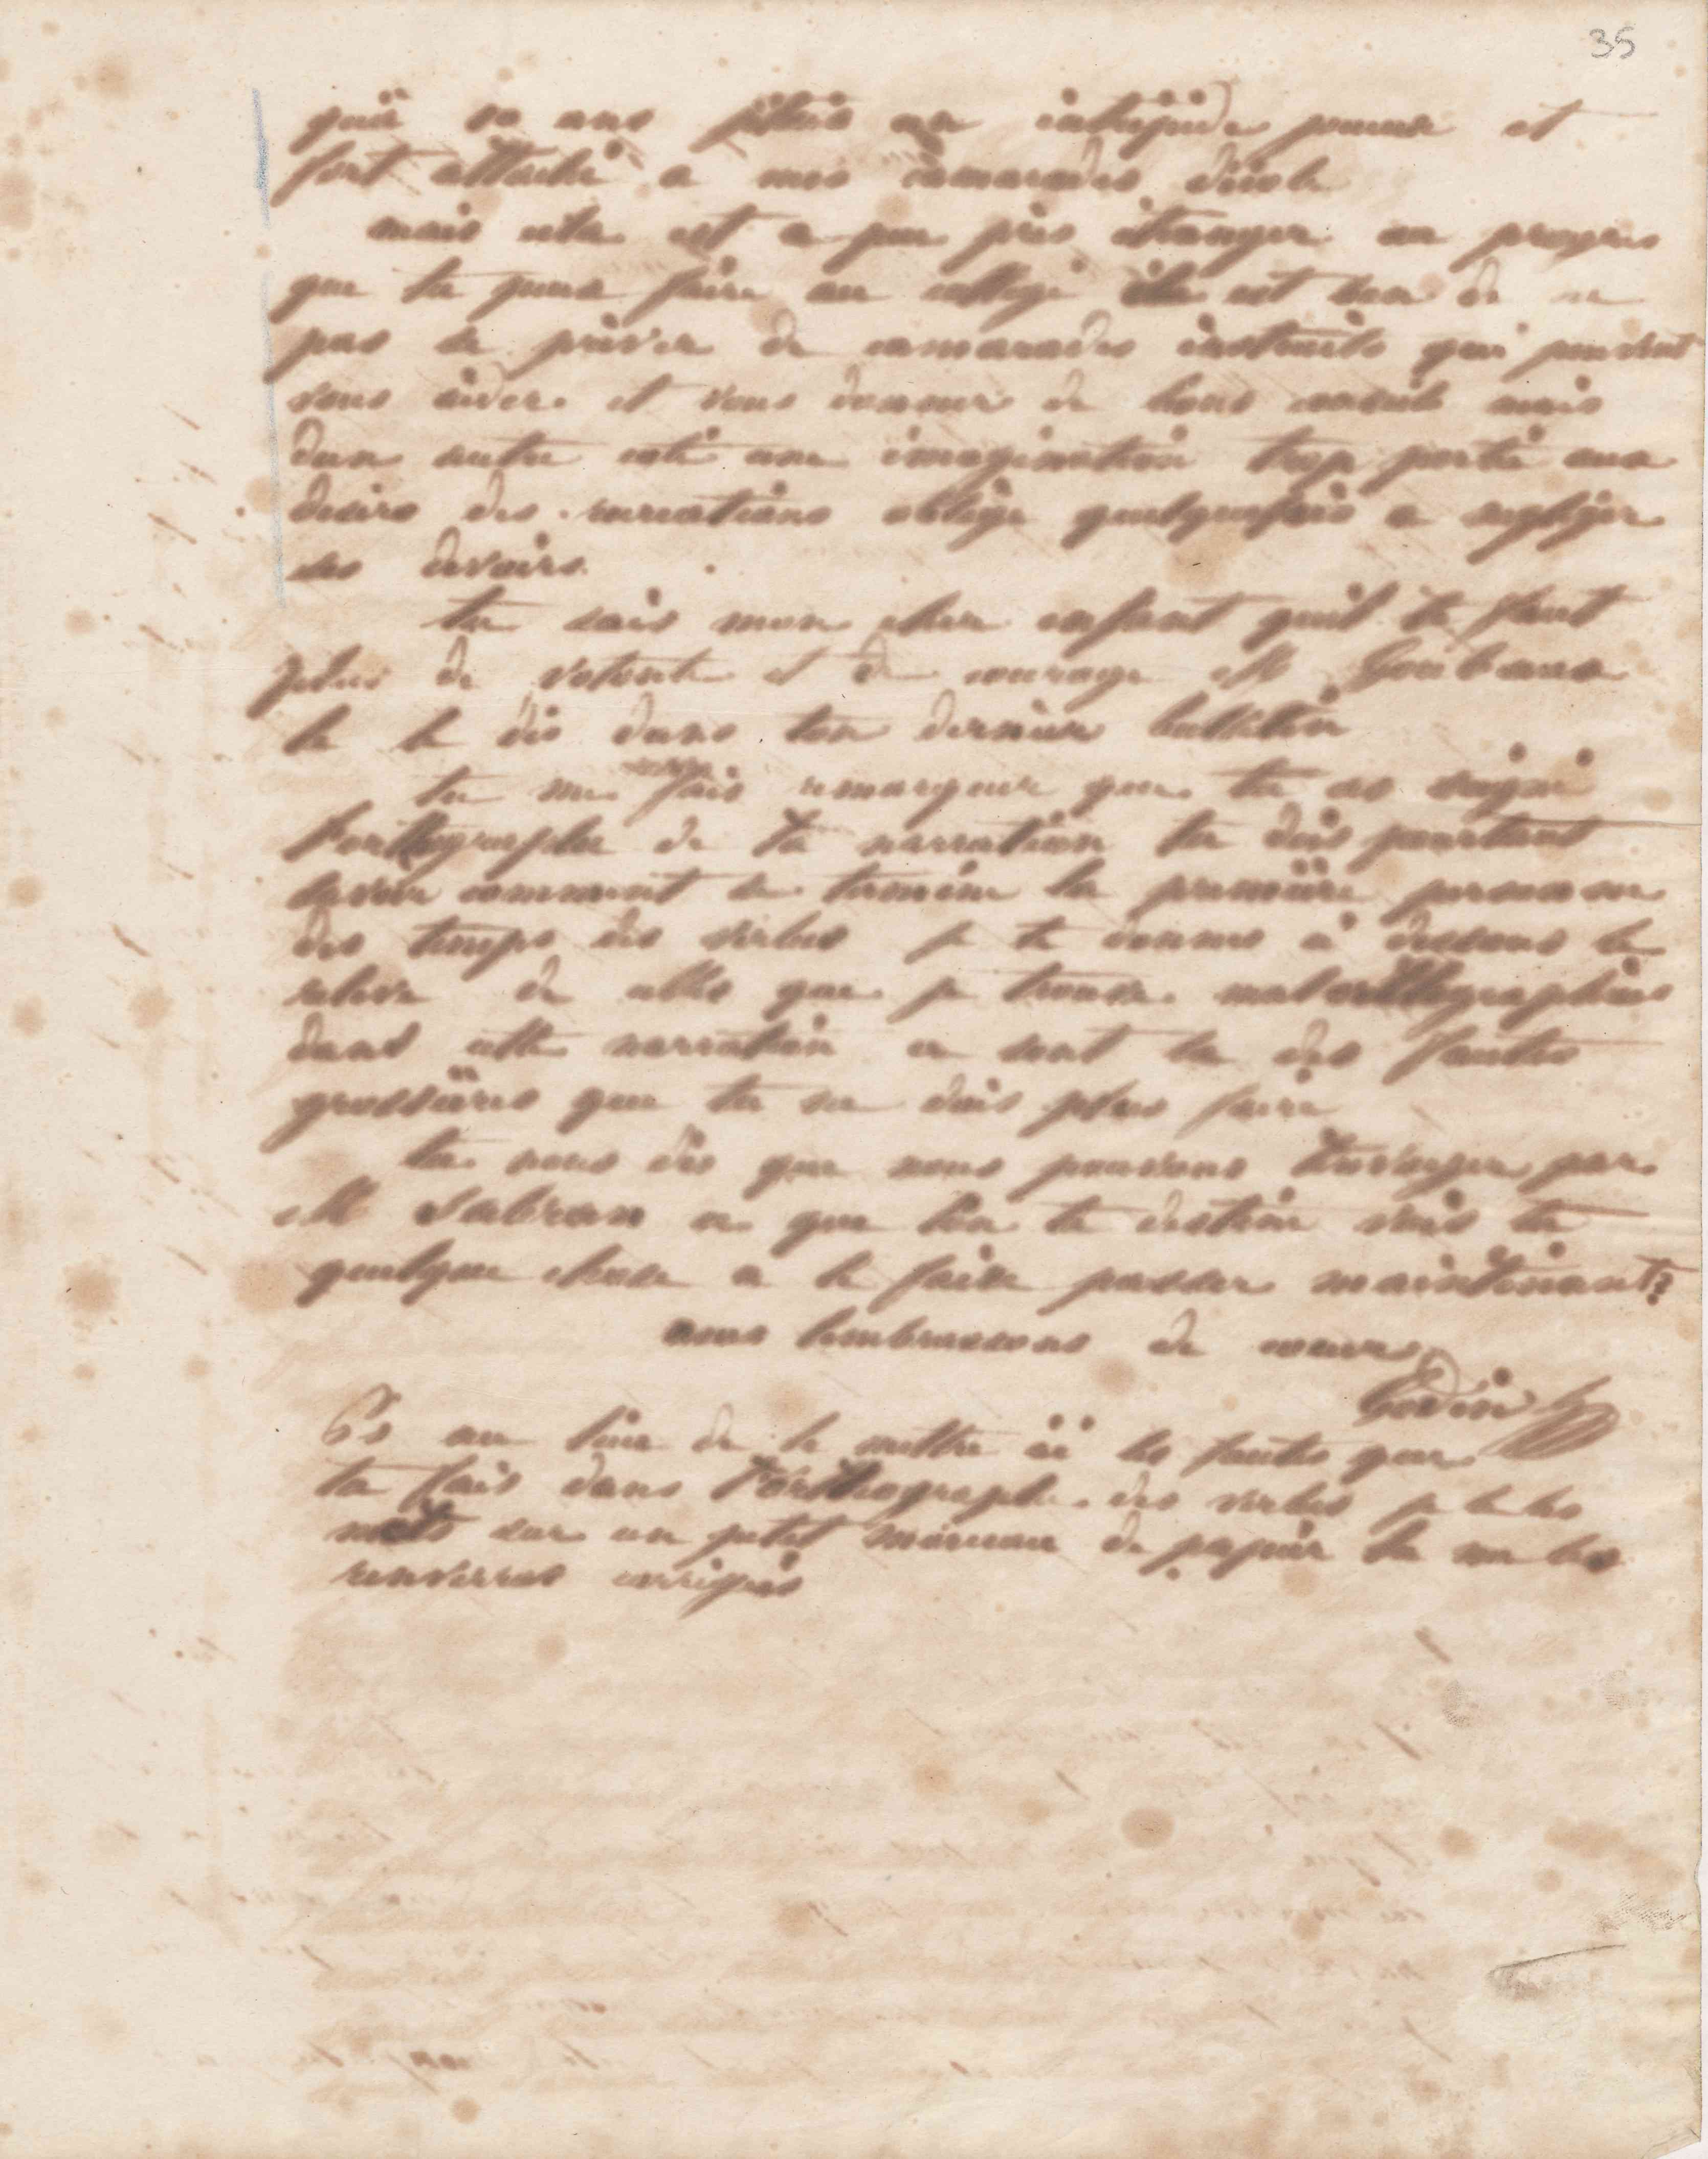 35
qu'à 10 ans j'étais un intrépide joueur et
fort attaché a mes camarades d'école
mais cela est a peu près étranger au progres
que tu peux faire au collège il est bon de ne
pas se priver de camarades instruits qui peuvent
vous aider et vous donner de bons conseils mais
dun autre coté une imagination trop portée aux
desirs des recreations oblige quelquefois a negliger
ses devoirs.
tu sais mon cher enfant quil te faut
plus de volonté et de courage Mr Goubaux
te le dis dans ton dernier bulletin
tu me fais remarquer que tu as soigné
l'orthographe de ta narration tu dois pourtant
savoir comment se termine la première personne
des temps des verbes je te donnes ci dessous le
relevé de celles que je trouve mal orthographiées
dans cette narration ce sont la des fautes
grossières que tu ne dois plus faire
tu nous dis que nous pouvons t'envoyer par
Mr Sabran ce que l'on te destine vois tu
quelque chose a te faire passer maintenant?
nous t'embrassons de coeurs
Godin
Ps au lieu de te mettre ici les fautes que
tu fais dans l'orthographe des verbes je te les
mets sur un petit morceau de papier tu me les
renverras corrigées